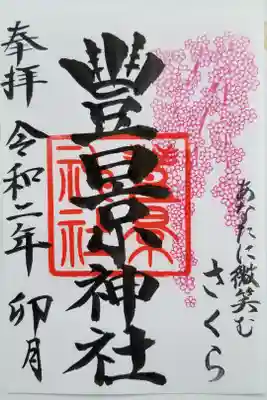 あなたに微笑む
さくら
豐景神社
神社
奉拝 令和二年 卯月